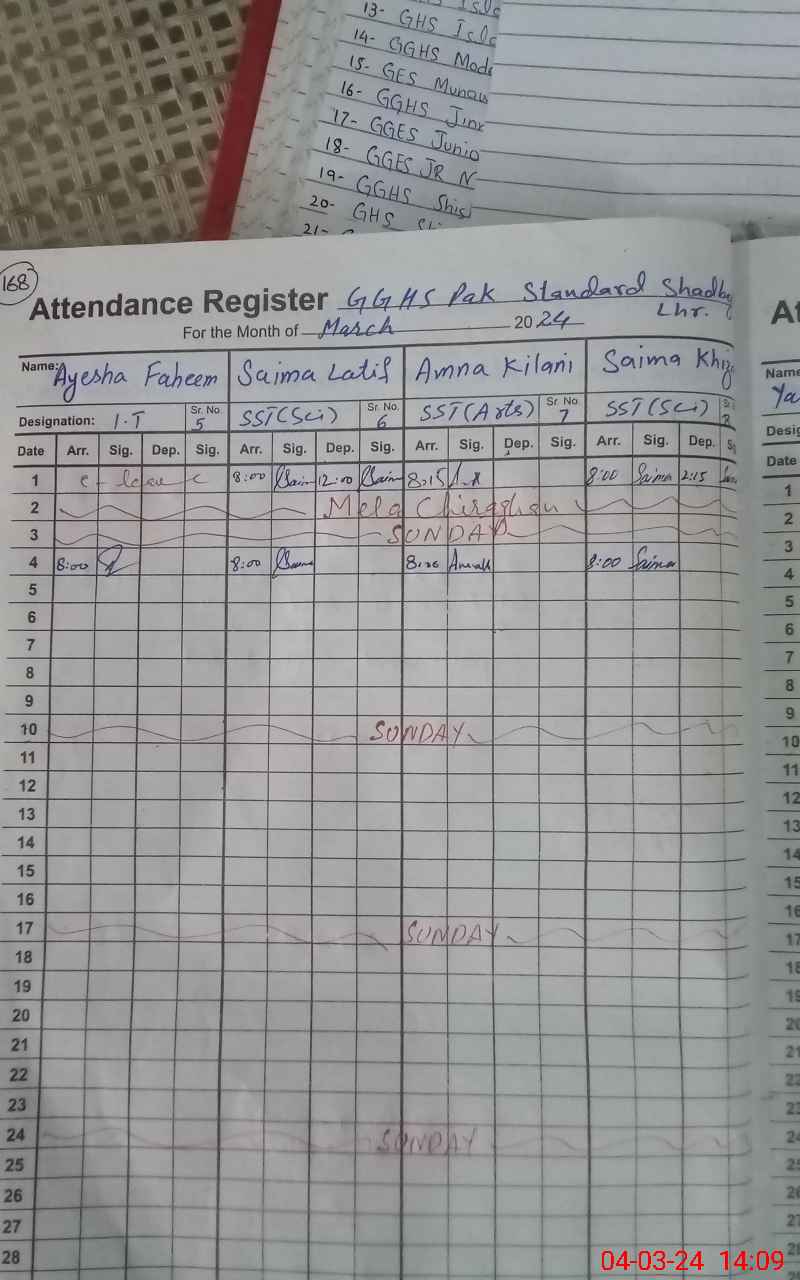 13- GHS Isla
14- GGHS Mode
15- GES Munaw
16- GGHS Jinn
17- GGES Junio
18- GGES JR N
19- GGHS Shis
20- GHS
21-
168
Attendance Register GGHS Pak Standard Shadba
Lhr.
For the Month of March 2024
Name: Ayesha Faheem Saima Latif Amna Kilani Saima Khiz
Designation: I.T Sr. No. 5 SST(Sci) Sr. No. 6 SST(Arts) Sr. No. 7 SST(Sci)
Date Arr. Sig. Dep. Sig. Arr. Sig. Dep. Sig. Arr. Sig. Dep. Sig. Arr. Sig. Dep.
1 c- leave c 8:00 Saim 12:00 Saim 8:15 8:00 Saima 2:15
2 Mela Chiraghan
3 SUNDAY
4 8:00 8:00 8:00 Saima
5
6
7
8
9
10 SUNDAY
11
12
13
14
15
16
17 SUNDAY
18
19
20
21
22
23
24 SUNDAY
25
26
27
28
At
Name
Ya
Desig
Date
1
2
3
4
5
6
7
8
9
10
11
12
13
14
15
16
17
18
19
20
21
22
23
24
25
26
27
04-03-24 14:09